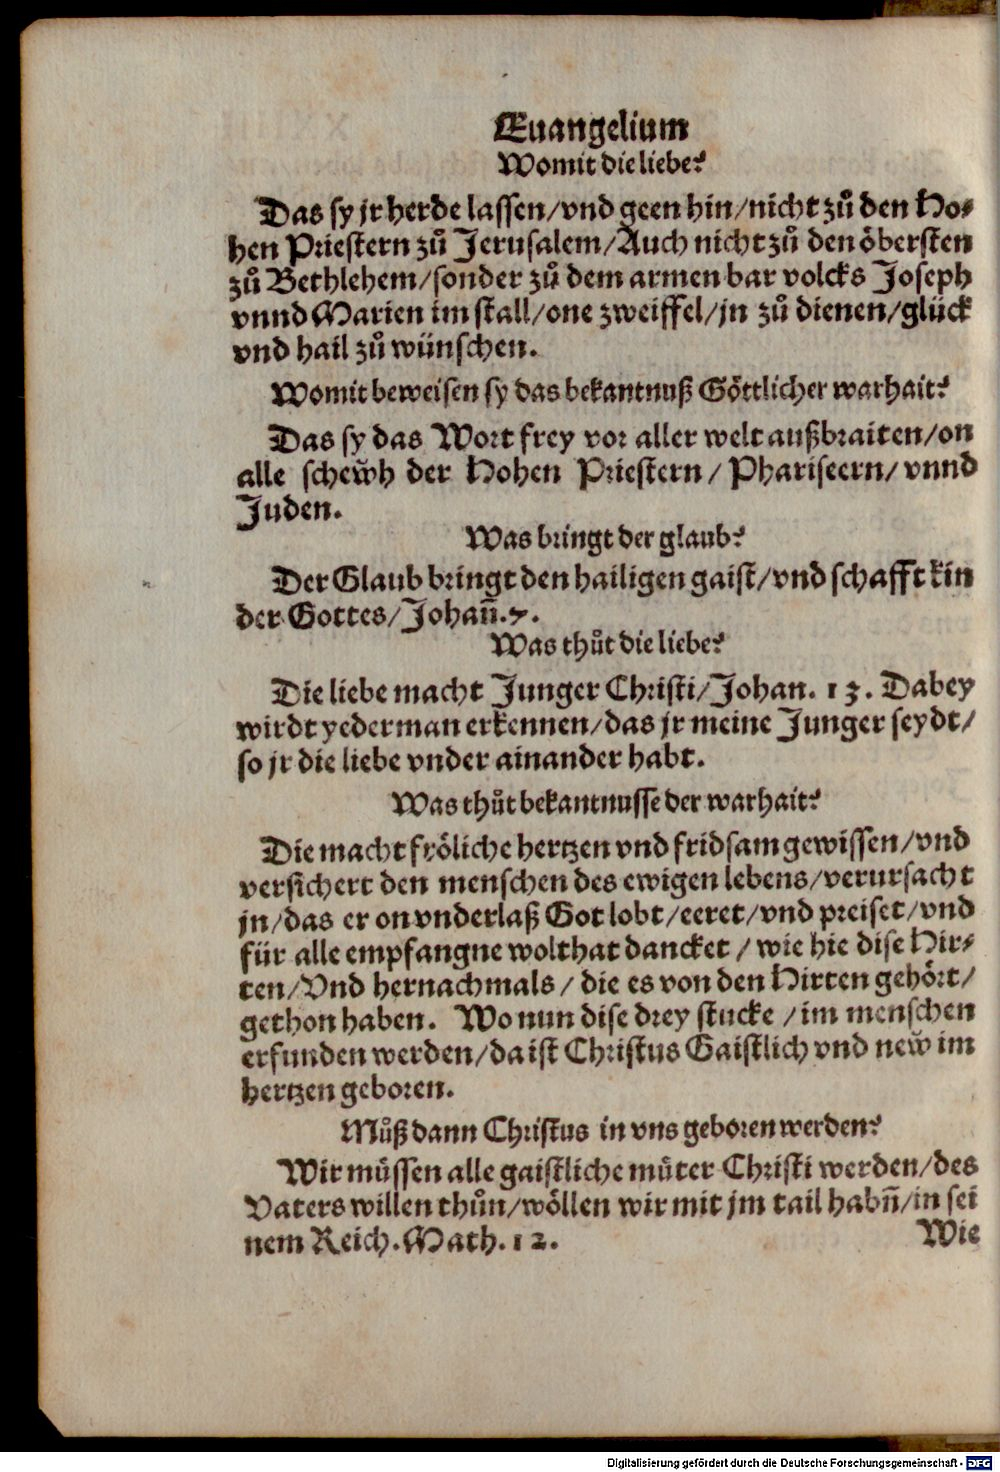 Euangelium
Womit die liebe?
Das sy jr herde lassen/vnd geen hin/nicht zů den Ho⸗
hen Priestern zů Jerusalem/Auch nicht zů den öbersten
zů Bethlehem/sonder zů dem armen bar volcks Joseph
vnnd Marien im stall/one zweiffel/jn zů dienen/glück
vnd hail zů wünschen.
Womit beweisen sy das bekantnuß Göttlicher warhait?
Das sy das Wort frey vor aller welt außbraiten/on
alle schew̆h der Hohen Priestern/ Phariseern/ vnnd
Juden.
Was bringt der glaub?
Der Glaub bringt den hailigen gaist/vnd schafft kin
der Gottes/Johañ.7.
Was thůt die liebe?
Die liebe macht Junger Christi/Johan. 13. Dabey
wirdt yederman erkennen/das jr meine Junger seydt/
so jr die liebe vnder ainander habt.
Was thůt bekantnusse der warhait?
Die macht fröliche hertzen vnd fridsam gewissen/vnd
versichert den menschen des ewigen lebens/verursacht
jn/das er on vnderlaß Got lobt/eeret/vnd preiset/vnd
für alle empfangne wolthat dancket / wie hie dise Hir⸗
ten/Vnd hernachmals / die es von den Hirten gehört/
gethon haben. Wo nun dise drey stucke /im menschen
erfunden werden/da ist Christus Gaistlich vnd new̆ im
hertzen geboren.
Můß dann Christus in vns geboren werden?
Wir müssen alle gaistliche můter Christi werden/des
Vaters willen thůn/wöllen wir mit jm tail habñ/in sei
nem Reich.Math.12.
Wie
Digitalisierung gefördert durch die Deutsche Forschungsgemeinschaft - DFG